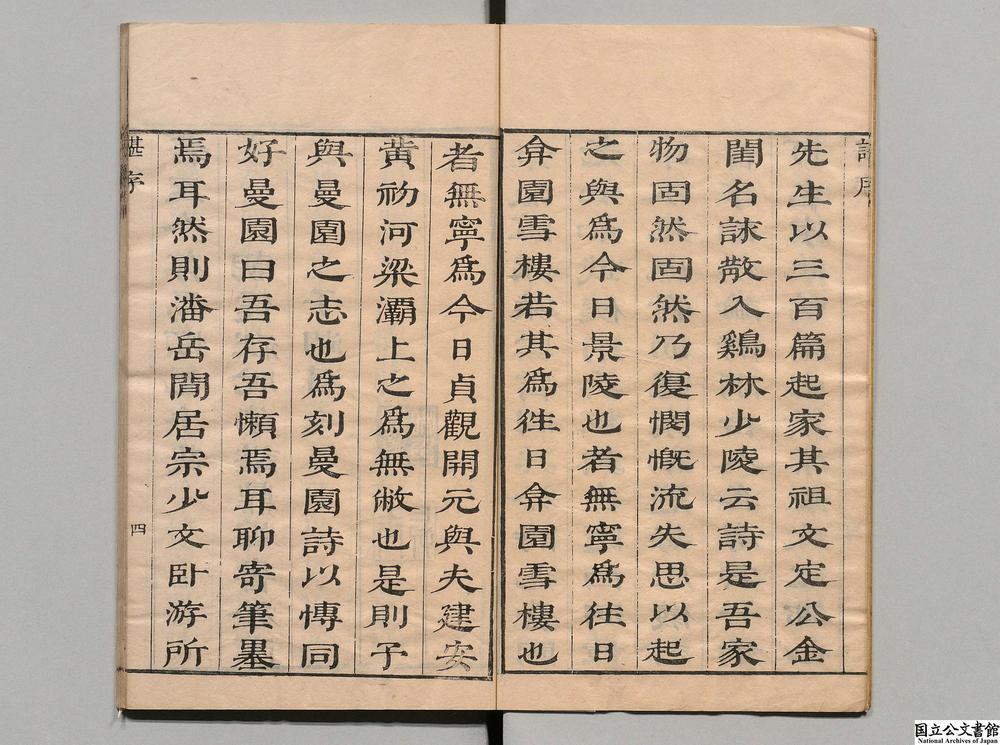 先生以三百篇起家其祖文定公金
閨名誄散入鷄林少陵云詩是吾家
物固然固然乃復憫慨流失思以起
之與爲今日景陵也者無寧爲往日
弇園雪樓若其爲往日弇園雪樓也
者無寧爲今日貞觀開元與夫建安
黃初河梁灞上之爲無敝也是則予
與曼園之志也爲刻曼園詩以傳同
好曼園曰吾存吾懶焉耳聊寄筆墨
焉耳然則潘岳閒居宗少文臥游所
序
四
国立公文書館
National Archives of Japan